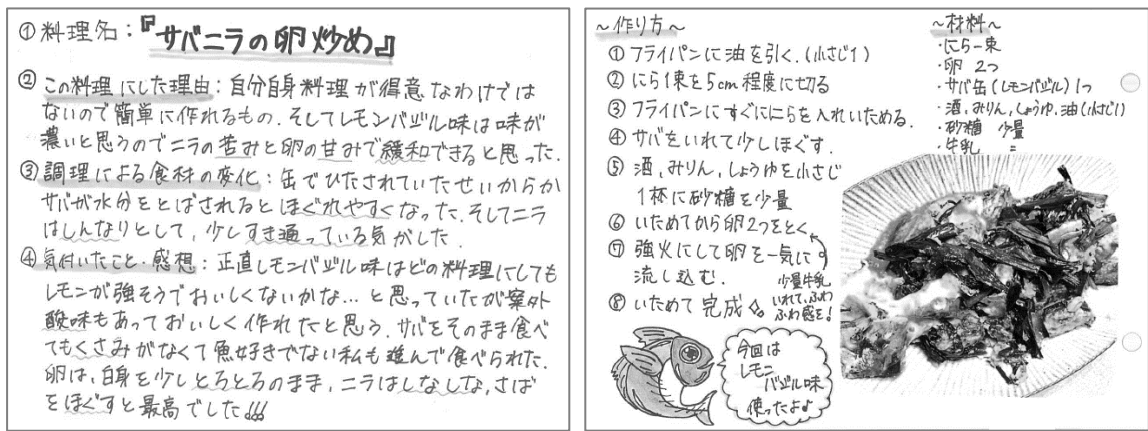 ①料理名：『サバニラの卵炒め』
②この料理にした理由：自分自身料理が得意なわけでは
ないので簡単に作れるもの．そしてレモンバジル味は味が
濃いと思うのでニラの苦みと卵の甘みで緩和できると思った．
③調理による食材の変化：缶でひたされていたせいからか
サバが水分をとばされるとほぐれやすくなった．そしてニラ
はしんなりとして，少しすき通っている気がした．
④気付いたこと・感想：正直レモンバジル味はどの料理にしても
レモンが強そうでおいしくないかな…と思っていたが案外
酸味もあっておいしく作れたと思う．サバをそのまま食べ
てもくさみがなくて魚好きでない私も進んで食べられた．
卵は，白身を少しとろとろのまま，ニラはしなしな，さば
をほぐすと最高でした!!!
～作り方～
①フライパンに油を引く．(小さじ1)
②にら1束を5cm程度に切る
③フライパンにすぐににらを入れいためる．
④サバをいれて少しほぐす．
⑤酒，みりん，しょうゆを小さじ
1杯に砂糖を少量
⑥いためてから卵2つをとく
⑦強火にして卵を一気に
流し込む．
少量牛乳
いれて，ふわ
ふわ感を!
⑧いためて完成
～材料～
・にら一束
・卵 2つ
・サバ缶(レモンバジル)1つ
・酒，みりん，しょうゆ，油(小さじ1)
・砂糖 少量
・牛乳 〃
今回は
レモン
バジル味
使ったよ♪